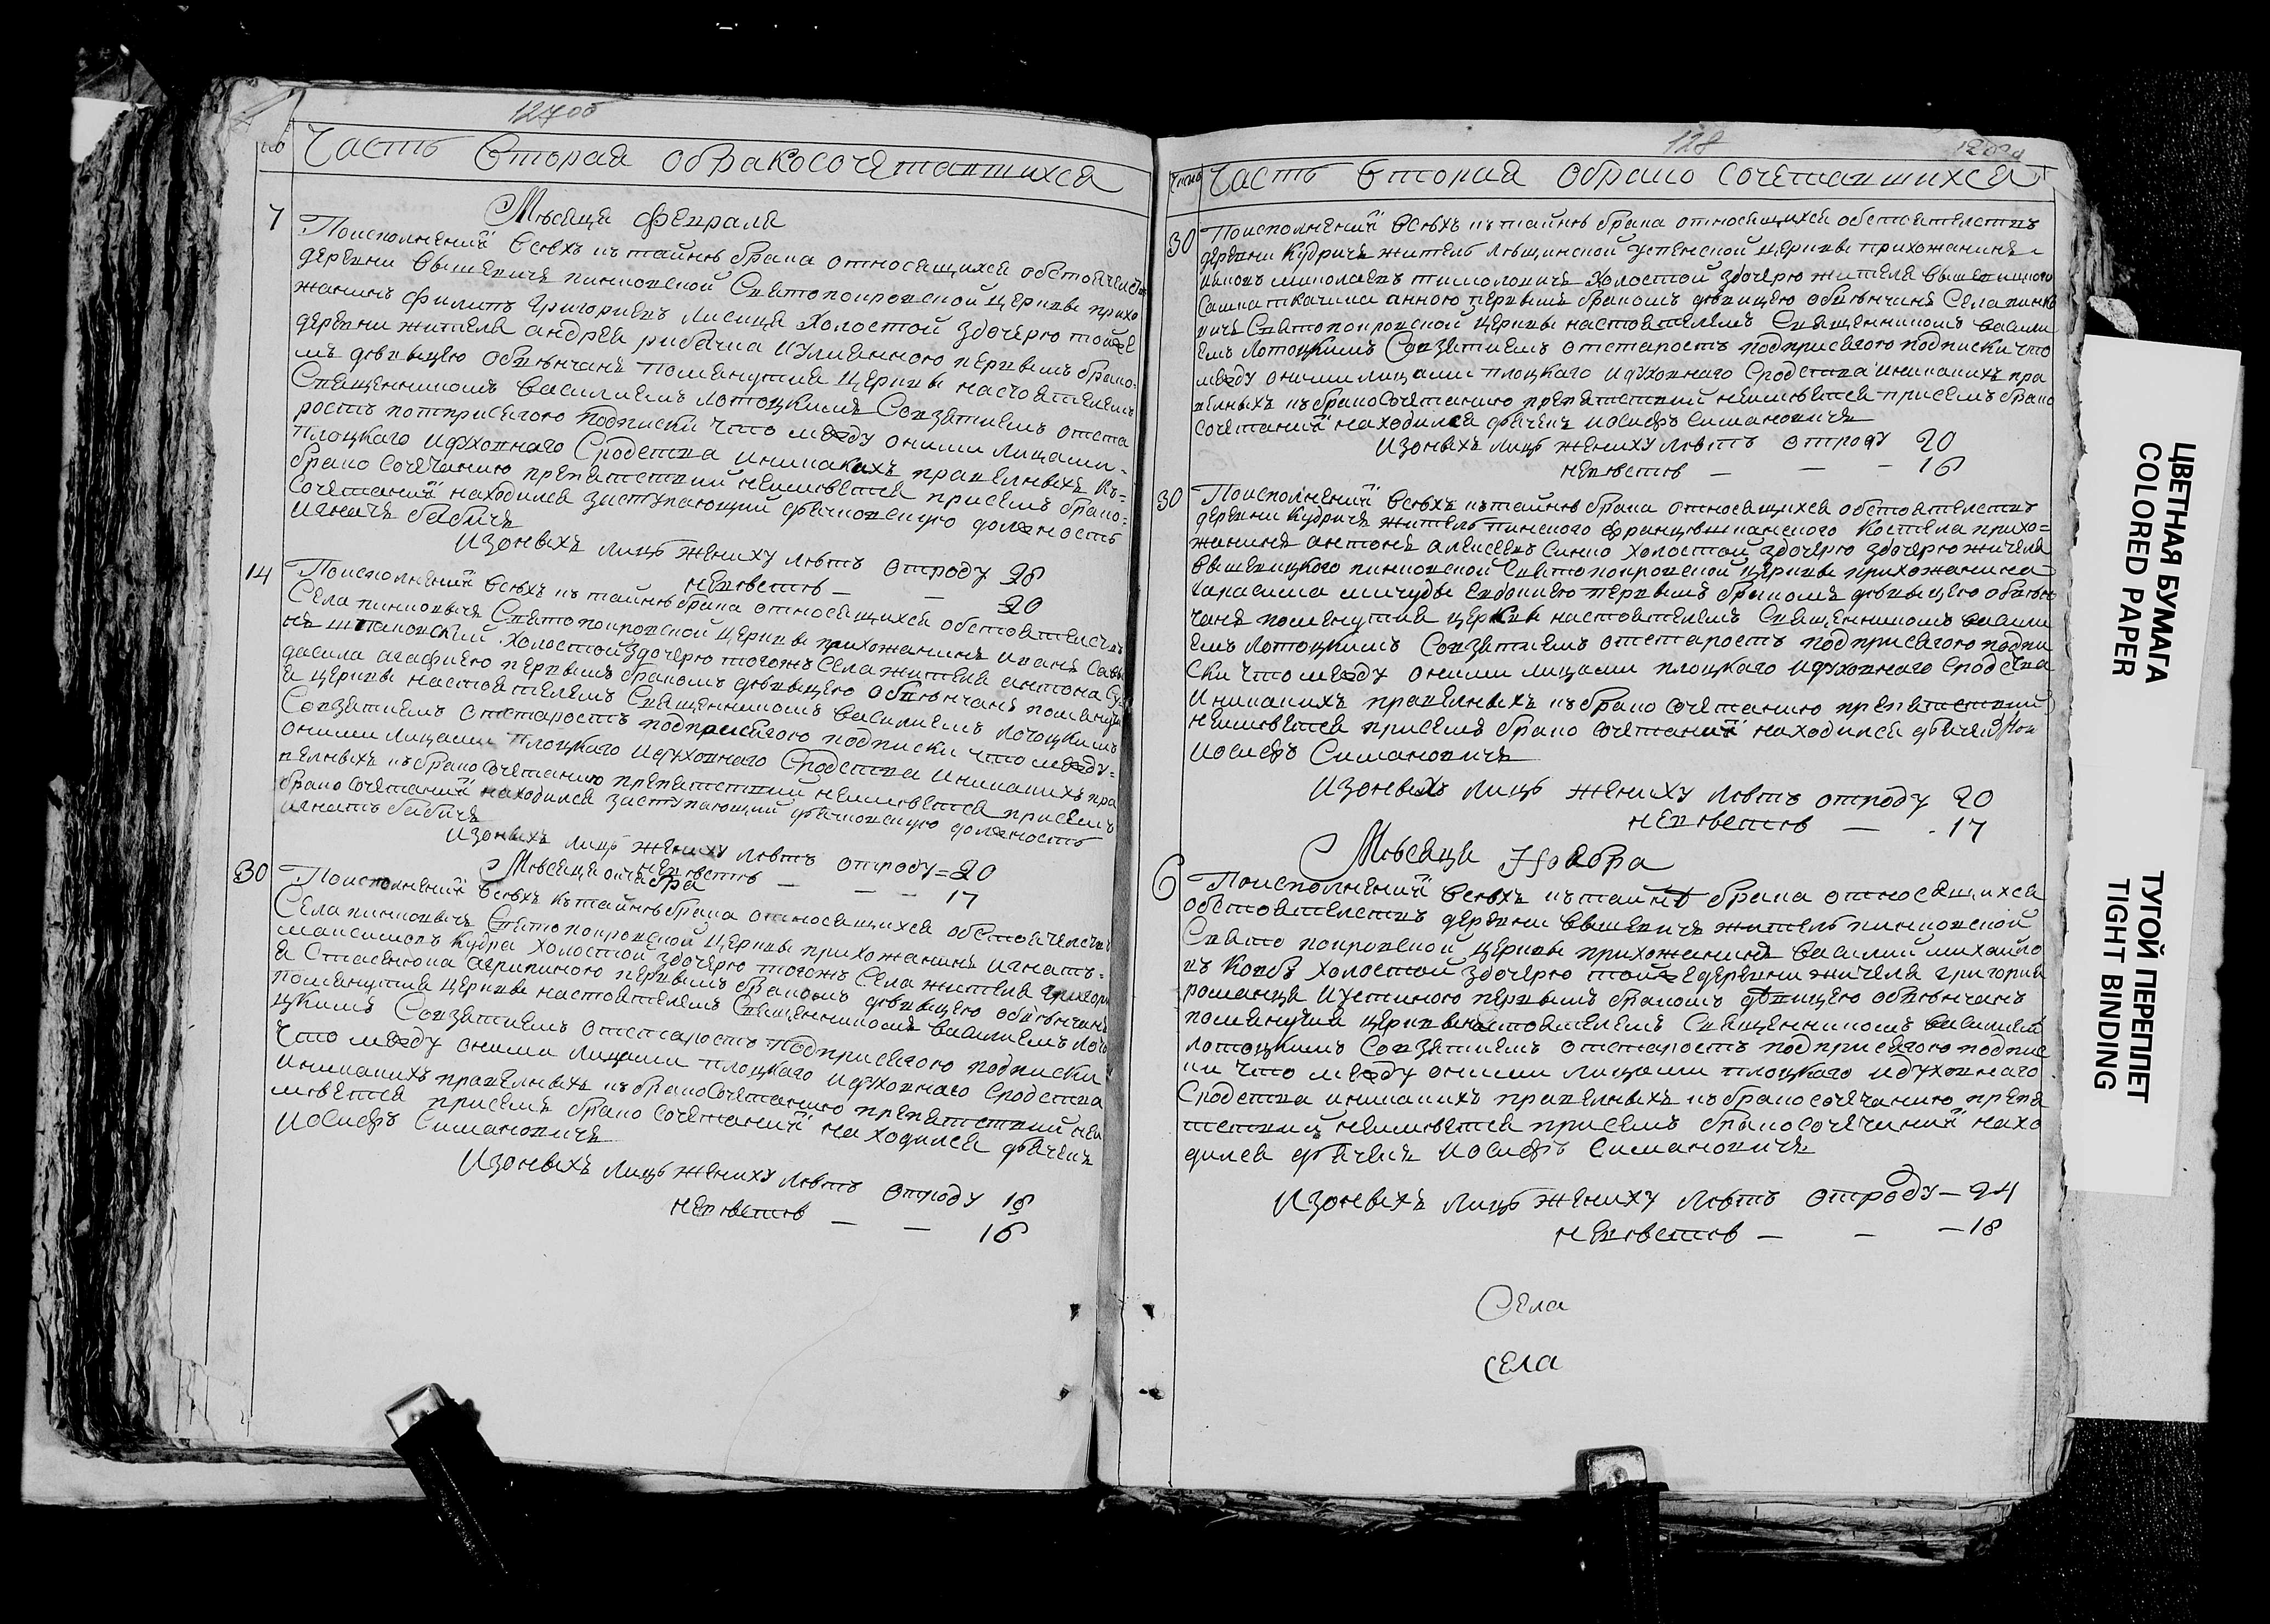 127об
Часть Вторая обракосочетавшихся
Месяца февраля
7 Поисполнении всехъ къ тайне брака относящихся обстоятелст
деревни Вышевичъ пинковской Святопокровской церкви прихо
жанинъ филипъ Григориевъ Лисица Холостой здочерю тойже
деревни жителя андрея рибачка Иулианною первымъ брако
мъ девицею обвенчанъ помянутия церкви настоятелемъ
Священникомъ василиемъ лотоцкимъ Совзятиемъ отста
ростъ потприсягою подписки что между оними лицами
плоцкаго идуховнаго Сродства иникакихъ правелныхъ къ=
брако сочетанию препятствий неимеется присемъ брако=
сочетании находился заступающий фячковскую должность
игнатъ бабичъ
Изоныхъ лицъ жениху летъ отроду 28
невесте — — 20
14 Поисполнении всехъ къ тайне брака относящихся обстоятелствъ
Села пинковичъ Святопокровской церкви прихожанинъ иванъ Савв
нъ шпаковский холостой здочерю тогожъ Села жителя антона Су
дасила агафиею первымъ бракомъ девицею обвенчанъ помянути
я церкви настоятелемъ Священникомъ василиемъ лотоцкимъ
Совзятиемъ отстаростъ подприсягою подписки что между=
оними лицами плоцкаго идуховнаго Сродства иникакихъ пра
велныхъ къбрако сочетанию препятствий неимеется присемъ
брако сочетании находился заступающий фячковскую должность
игнатъ бабичъ
Изоныхъ лицъ жениху летъ отроду = 20
невесте — — — 17
Месяца октабра
30 Поисполнении всехъ къ тайне брака относящихся обстоятелствъ
Села пинковичъ Святопокровской церкви прихожанинъ игнатъ=
максимовъ Кудра холостой здочерю тогожъ Села жителя григори
я Стасевюка агрипиною первымъ бракомъ девицею обвенчанъ
помянутия церкви настоятелемъ Священникомъ василиемъ лото
цкимъ Совзятиемъ отстаростъ подприсягою подписки
что между оними лицами плоцкаго идуховнаго Сродства
иникакихъ правелныхъ къбрако Сочетанию препятствий неи
меется присемъ брако сочетании находился фячекъ
иосифъ Симановичъ
Изоныхъ лицъ жениху летъ отроду 18
невесте — — 16
128
Число Часть вторая обрако сочетавшихся
30 Поисполнении всехъ къ тайне брака относящихся обстоятелствъ
деревни Кудричъ житель ловщинской успенской церкви прихожанинъ
иаковъ николаевъ тимоловичъ Холостой здочерю жителя вышевицкого
Сашка ткачика анною первымъ бракомъ девицею обвенчанъ Села пинко
вичъ Святопокровской церкви настоятелемъ Священникомъ васили
емъ лотоцкимъ Совзятиемъ отстаростъ подприсягою подписки что
между оними лицами плоцкаго идуховнаго Сродства иникакихъ пра
велныхъ къбрако Сочетанию препятствий неимеется присемъ брако
сочетании находился фячекъ иосифъ Симановичъ
Изоныхъ лицъ жениху летъ отроду 20
невесте — — — 16
30 Поисполнении всехъ къ тайне брака относящихся обстоятелствъ
деревни Кудричъ житель пинского францишканского Костела прихо=
жанинъ антонъ алексеевъ холостой здочерю здочерю жителя
вышевицкого пинковской Святопокровской церкви прихожанина
тарасика мичуды евдокиею первымъ бракомъ девицею обвен
чанъ помянутия церкви настоятелемъ Священникомъ васили
емъ лотоцкимъ Совзятиемъ отстаростъ подприсягою подпи
ски что между оними лицами плоцкаго идуховнаго Сродства
иникакихъ правелныхъ къбрако сочетанию препятствий
неимеется присемъ брако сочетании находился фячекъ
иосифъ Симановичъ
Изонихъ лицъ жениху летъ отроду 20
невесте — 17
Месяца Ноабра
6 Поисполнении всехъ къ тайне брака относящихся
обстоятелствъ деревни вышевичъ житель пинковской
Свято покровской церкви прихожанинъ василий михайло
въ Коябъ холостой здочерю тойже деревни жителя григория
романца Иустиною первымъ бракомъ девицею обвенчанъ
помянутия церкви настоятелемъ Священникомъ василием
лотоцкимъ Совзятиемъ отстаростъ подприсягою подпис
ки что между оними лицами плоцкаго идуховнаго
Сродства иникакихъ правелныхъ къбрако сочетанию препя
тствий неимеется присемъ брако сочетании нахо
дился фячекъ иосифъ Симановичъ
Изоныхъ лицъ жениху летъ отроду — 24
невесте — — — 18
Села
села
ЦВЕТНАЯ БУМАГА
COLORED PAPER
ТУГОЙ ПЕРЕПЛЕТ
TIGHT BINDING